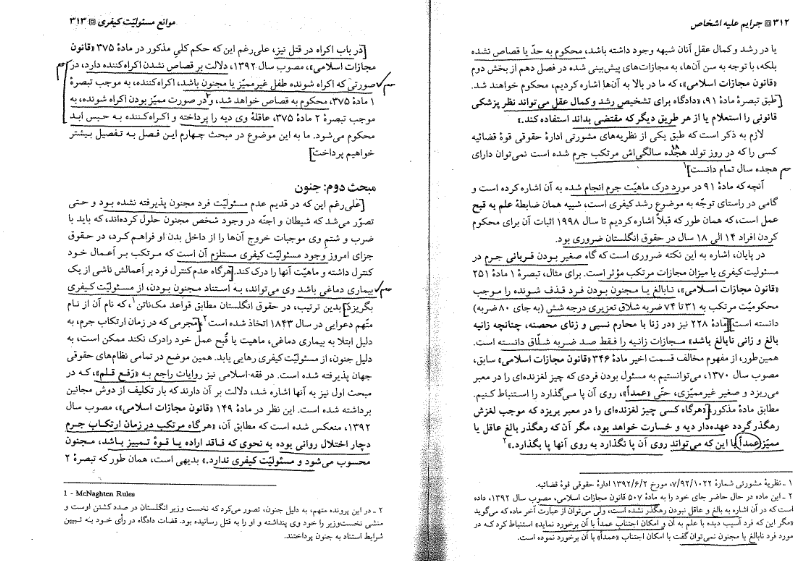 ۳۱۲ جرایم علیه اشخاص
یا در رشد و کمال عقل آنان شبهه وجود داشته باشد، محکوم به حدّ یا قصاص نشده
بلکه، با توجه به سن آن‌ها، به مجازات‌های پیش‌بینی شده در فصل دهم از بخش دوم
«قانون مجازات اسلامی»، که ما در بالا به آن‌ها اشاره کردیم، محکوم خواهند شد.
طبق تبصرهٔ مادهٔ ۹۱، «دادگاه برای تشخیص رشد و کمال عقل می‌تواند نظر پزشکی
قانونی را استعلام یا از هر طریق دیگر که مقتضی بداند استفاده کند.»
لازم به ذکر است که طبق یکی از نظریه‌های مشورتی ادارهٔ حقوقی قوهٔ قضائیه
کسی را که در روز تولد هجده سالگی‌اش مرتکب جرم شده است نمی‌توان دارای
هجده سال تمام دانست.۱
آنچه که مادهٔ ۹۱ در مورد درک ماهیّت جرم انجام شده به آن اشاره کرده است و
گامی در راستای توجّه به موضوع رشد کیفری است، شبیه همان ضابطهٔ علم به قبح
عمل است، که همان طور که قبلاً اشاره کردیم تا سال ۱۹۹۸ اثبات آن برای محکوم
کردن افراد ۱۴ الی ۱۸ سال در حقوق انگلستان ضروری بود.
در پایان، اشاره به این نکته ضروری است که گاه صغیر بودن قربانی جرم در
مسئولیت کیفری یا میزان مجازات مرتکب مؤثر است. برای مثال، تبصرهٔ ۱ مادهٔ ۲۵۱
«قانون مجازات اسلامی»، نابالغ یا مجنون بودن فرد قذف شونده را موجب
محکومیّت مرتکب به ۳۱ تا ۷۴ ضربه شلاق تعزیری درجه شش (به جای ۸۰ ضربه)
دانسته است. مادهٔ ۲۲۸ نیز «در زنا با محارم نسبی و زنای محصنه، چنانچه زانیه
بالغ و زانی نابالغ باشد» مجازات زانیه را فقط صد ضربه شلّاق دانسته است.
همین‌طور، از مفهوم مخالف قسمت اخیر مادهٔ ۳۴۶ «قانون مجازات اسلامی» سابق،
مصوب سال ۱۳۷۰، می‌توانستیم به مسئول بودن فردی که چیز لغزنده‌ای را در معبر
می‌ریزد و صغیر غیرممیّزی، حتّی «عمداً»، روی آن پا می‌گذارد را استنباط کنیم.
مطابق مادهٔ مذکور، «هرگاه کسی چیز لغزنده‌ای را در معبر بریزد که موجب لغزش
رهگذر گردد عهده‌دار دیه و خسارت خواهد بود، مگر آن که رهگذر بالغ عاقل یا
ممیّز عمداً با این که می‌تواند روی آن پا نگذارد به روی آنها پا بگذارد.»۲
۱ ـ نظریهٔ مشورتی شمارهٔ ۷/۹۲/۱۰۲۲، مورخ ۱۳۹۲/۶/۲ ادارهٔ حقوقی قوهٔ قضائیه.
۲ ـ این ماده در حال حاضر جای خود را به مادهٔ ۵۰۷ قانون مجازات اسلامی، مصوب سال ۱۳۹۲، داده
است که در آن اشاره به بالغ و عاقل نبودن رهگذر نشده است، ولی می‌توان از عبارت آخر ماده که می‌گوید
«مگر این که فرد آسیب دیده با علم به آن و امکان اجتناب عمداً با آن برخورد نماید» استنباط کرد که در
مورد فرد نابالغ یا مجنون نمی‌توان گفت با امکان اجتناب «عمداً» با آن برخورد نموده است.
موانع مسئولیّت کیفری ۳۱۳
در باب اکراه در قتل نیز، علی‌رغم این که حکم کلی مذکور در مادهٔ ۳۷۵ «قانون
مجازات اسلامی»، مصوب سال ۱۳۹۲، دلالت بر قصاص نشدن اکراه‌کننده دارد، در
صورتی که اکراه شونده طفل غیرممیّز یا مجنون باشد، اکراه‌کننده، به موجب تبصرهٔ
۱ مادهٔ ۳۷۵، محکوم به قصاص خواهد شد، و در صورت ممیّز بودن اکراه شونده، به
موجب تبصرهٔ ۲ مادهٔ ۳۷۵، عاقلهٔ وی دیه را پرداخته و اکراه‌کننده به حبس ابد
محکوم می‌شود. ما به این موضوع در مبحث چهارم این فصل به تفصیل بیشتر
خواهیم پرداخت.
مبحث دوم: جنون
علی‌رغم این که در قدیم عدم مسئولیّت فرد مجنون پذیرفته نشده بود و حتی
تصوّر می‌شد که شیطان و اجنّه در وجود شخص مجنون حلول کرده‌اند، که باید با
ضرب و شتم وی موجبات خروج آن‌ها را از داخل بدن او فراهم کرد، در حقوق
جزای امروز وجود مسئولیّت کیفری مستلزم آن است که مرتکب بر اعمال خود
کنترل داشته و ماهیّت آنها را درک کند. هرگاه عدم کنترل فرد بر اعمالش ناشی از یک
بیماری دماغی باشد وی می‌تواند، به استناد مجنون بودن، از مسئولیّت کیفری
بگریزد. بدین ترتیب، در حقوق انگلستان مطابق قواعد مک‌ناتن۱، که نام آن از نام
متّهم دعوایی در سال ۱۸۴۳ اتخاذ شده است۲، مجرمی که در زمان ارتکاب جرم، به
دلیل ابتلا به بیماری دماغی، ماهیت یا قُبح عمل خود را درک نکند ممکن است، به
دلیل جنون، از مسئولیّت کیفری رهایی یابد. همین موضع در تمامی نظام‌های حقوقی
جهان پذیرفته شده است. در فقه اسلامی نیز روایات راجع به «رَفع قلم»، که در
مبحث اول نیز به آنها اشاره شد، دلالت بر آن دارند که بار تکلیف از دوش مجانین
برداشته شده است. این نظر در مادهٔ ۱۴۹ «قانون مجازات اسلامی»، مصوب سال
۱۳۹۲، منعکس شده است که مطابق آن، «هرگاه مرتکب در زمان ارتکاب جرم
دچار اختلال روانی بوده به نحوی که فاقد اراده یا قوهٔ تمییز باشد، مجنون
محسوب می‌شود و مسئولیّت کیفری ندارد.» بدیهی است، همان طور که تبصرهٔ ۲
1 - McNaghten Rules
۲ ـ در این پرونده متهم، به دلیل جنون، تصور می‌کرد که نخست وزیر انگلستان در صدد کشتن اوست و
منشی نخست‌وزیر را خود وی پنداشته و او را به قتل رسانیده بود. قضات دادگاه در رأی خود به تبیین
شرایط استناد به جنون پرداختند.